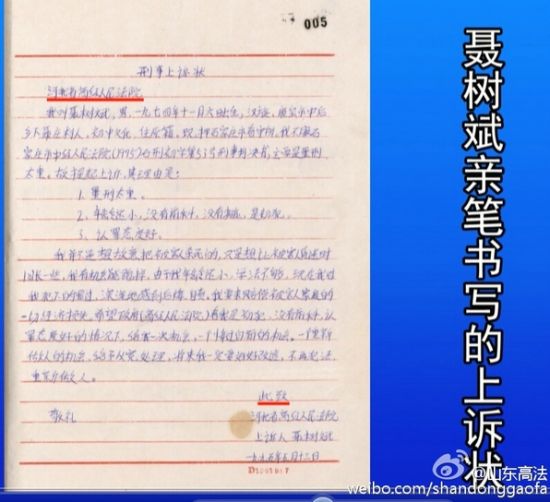 005
刑事上诉状
河北省高级人民法院
我叫聂树斌，男，一九七四年十一月六日出生，汉族，鹿泉市申后
乡下聂庄村人，初中文化，住原籍，现押石家庄市看守所，我不服石
家庄市中级人民法院(1995)石刑初字第53号刑事判决书，主要是量刑
太重。故提起上诉，其理由是：
1. 量刑太重。
2. 年龄还小，没有前科，没有劣迹，是初犯。
3. 认罪态度好。
我并不是想故意把被害人杀死的，只是想让被害人昏迷时
间长一些，我有机会能逃掉。由于我年龄还小，学法不够，现在我对
我犯下的罪过，深深地感到后悔、自责。我要求赔偿被害人家庭的
一切经济损失，希望政府(高级人民法院)看我是初犯，没有前科，认
罪态度好的情况下，给我一次机会，一个悔过自新的机会，一个重新
做人的机会，给予从宽处理，将来我一定要好好改造，不再犯法
重新做人。
此致
敬礼
河北省高级人民法院
上诉人 聂树斌
一九九五年五月十三日
聂树斌亲笔书写的上诉状
@山东高法
weibo.com/shandonggaofa